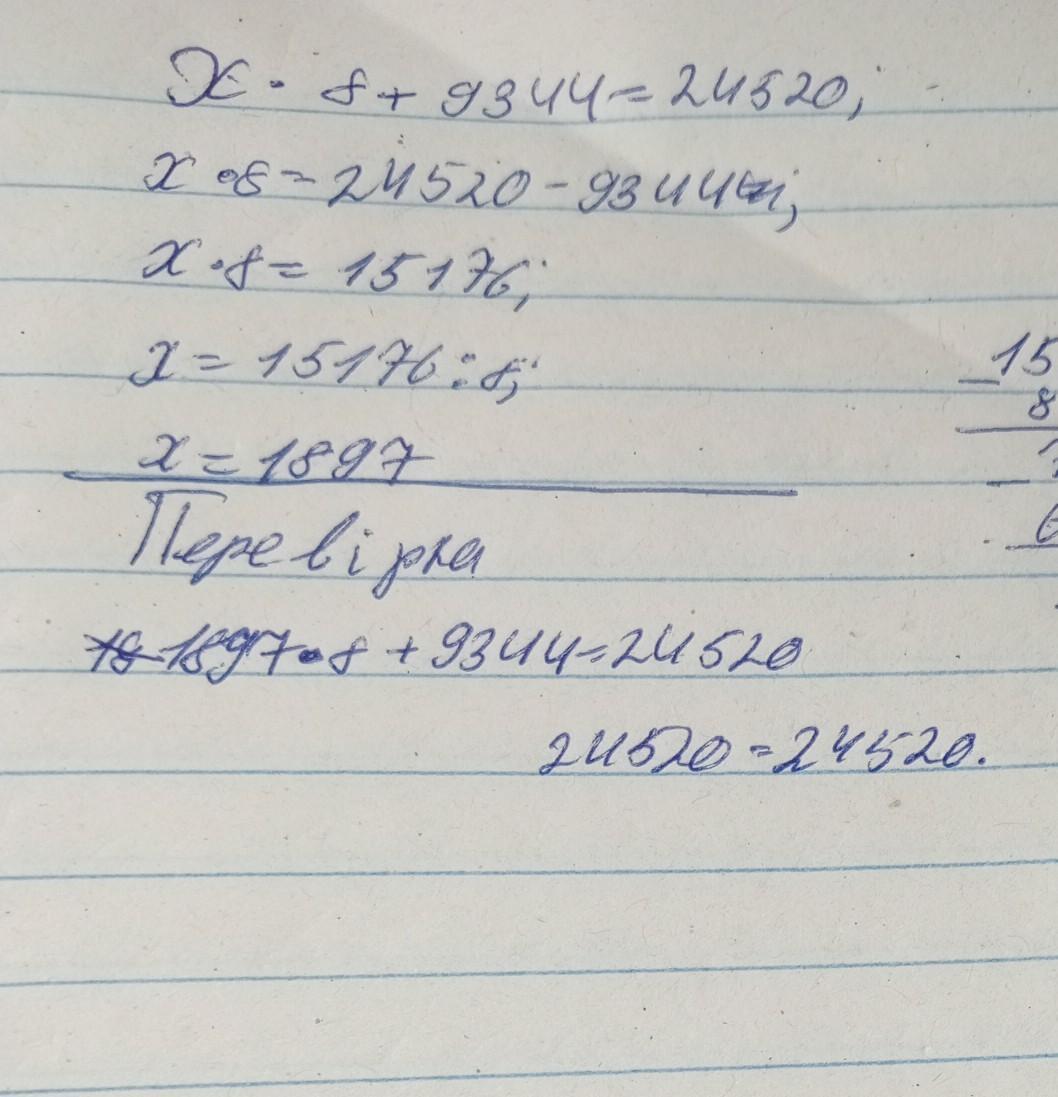 x · 8 + 9344 = 24520;
x · 8 = 24520 - 9344;
x · 8 = 15176;
x = 15176 : 8;
x = 1897
Перевірка
1897 · 8 + 9344 = 24520
24520 = 24520.
- 15
8
-
6